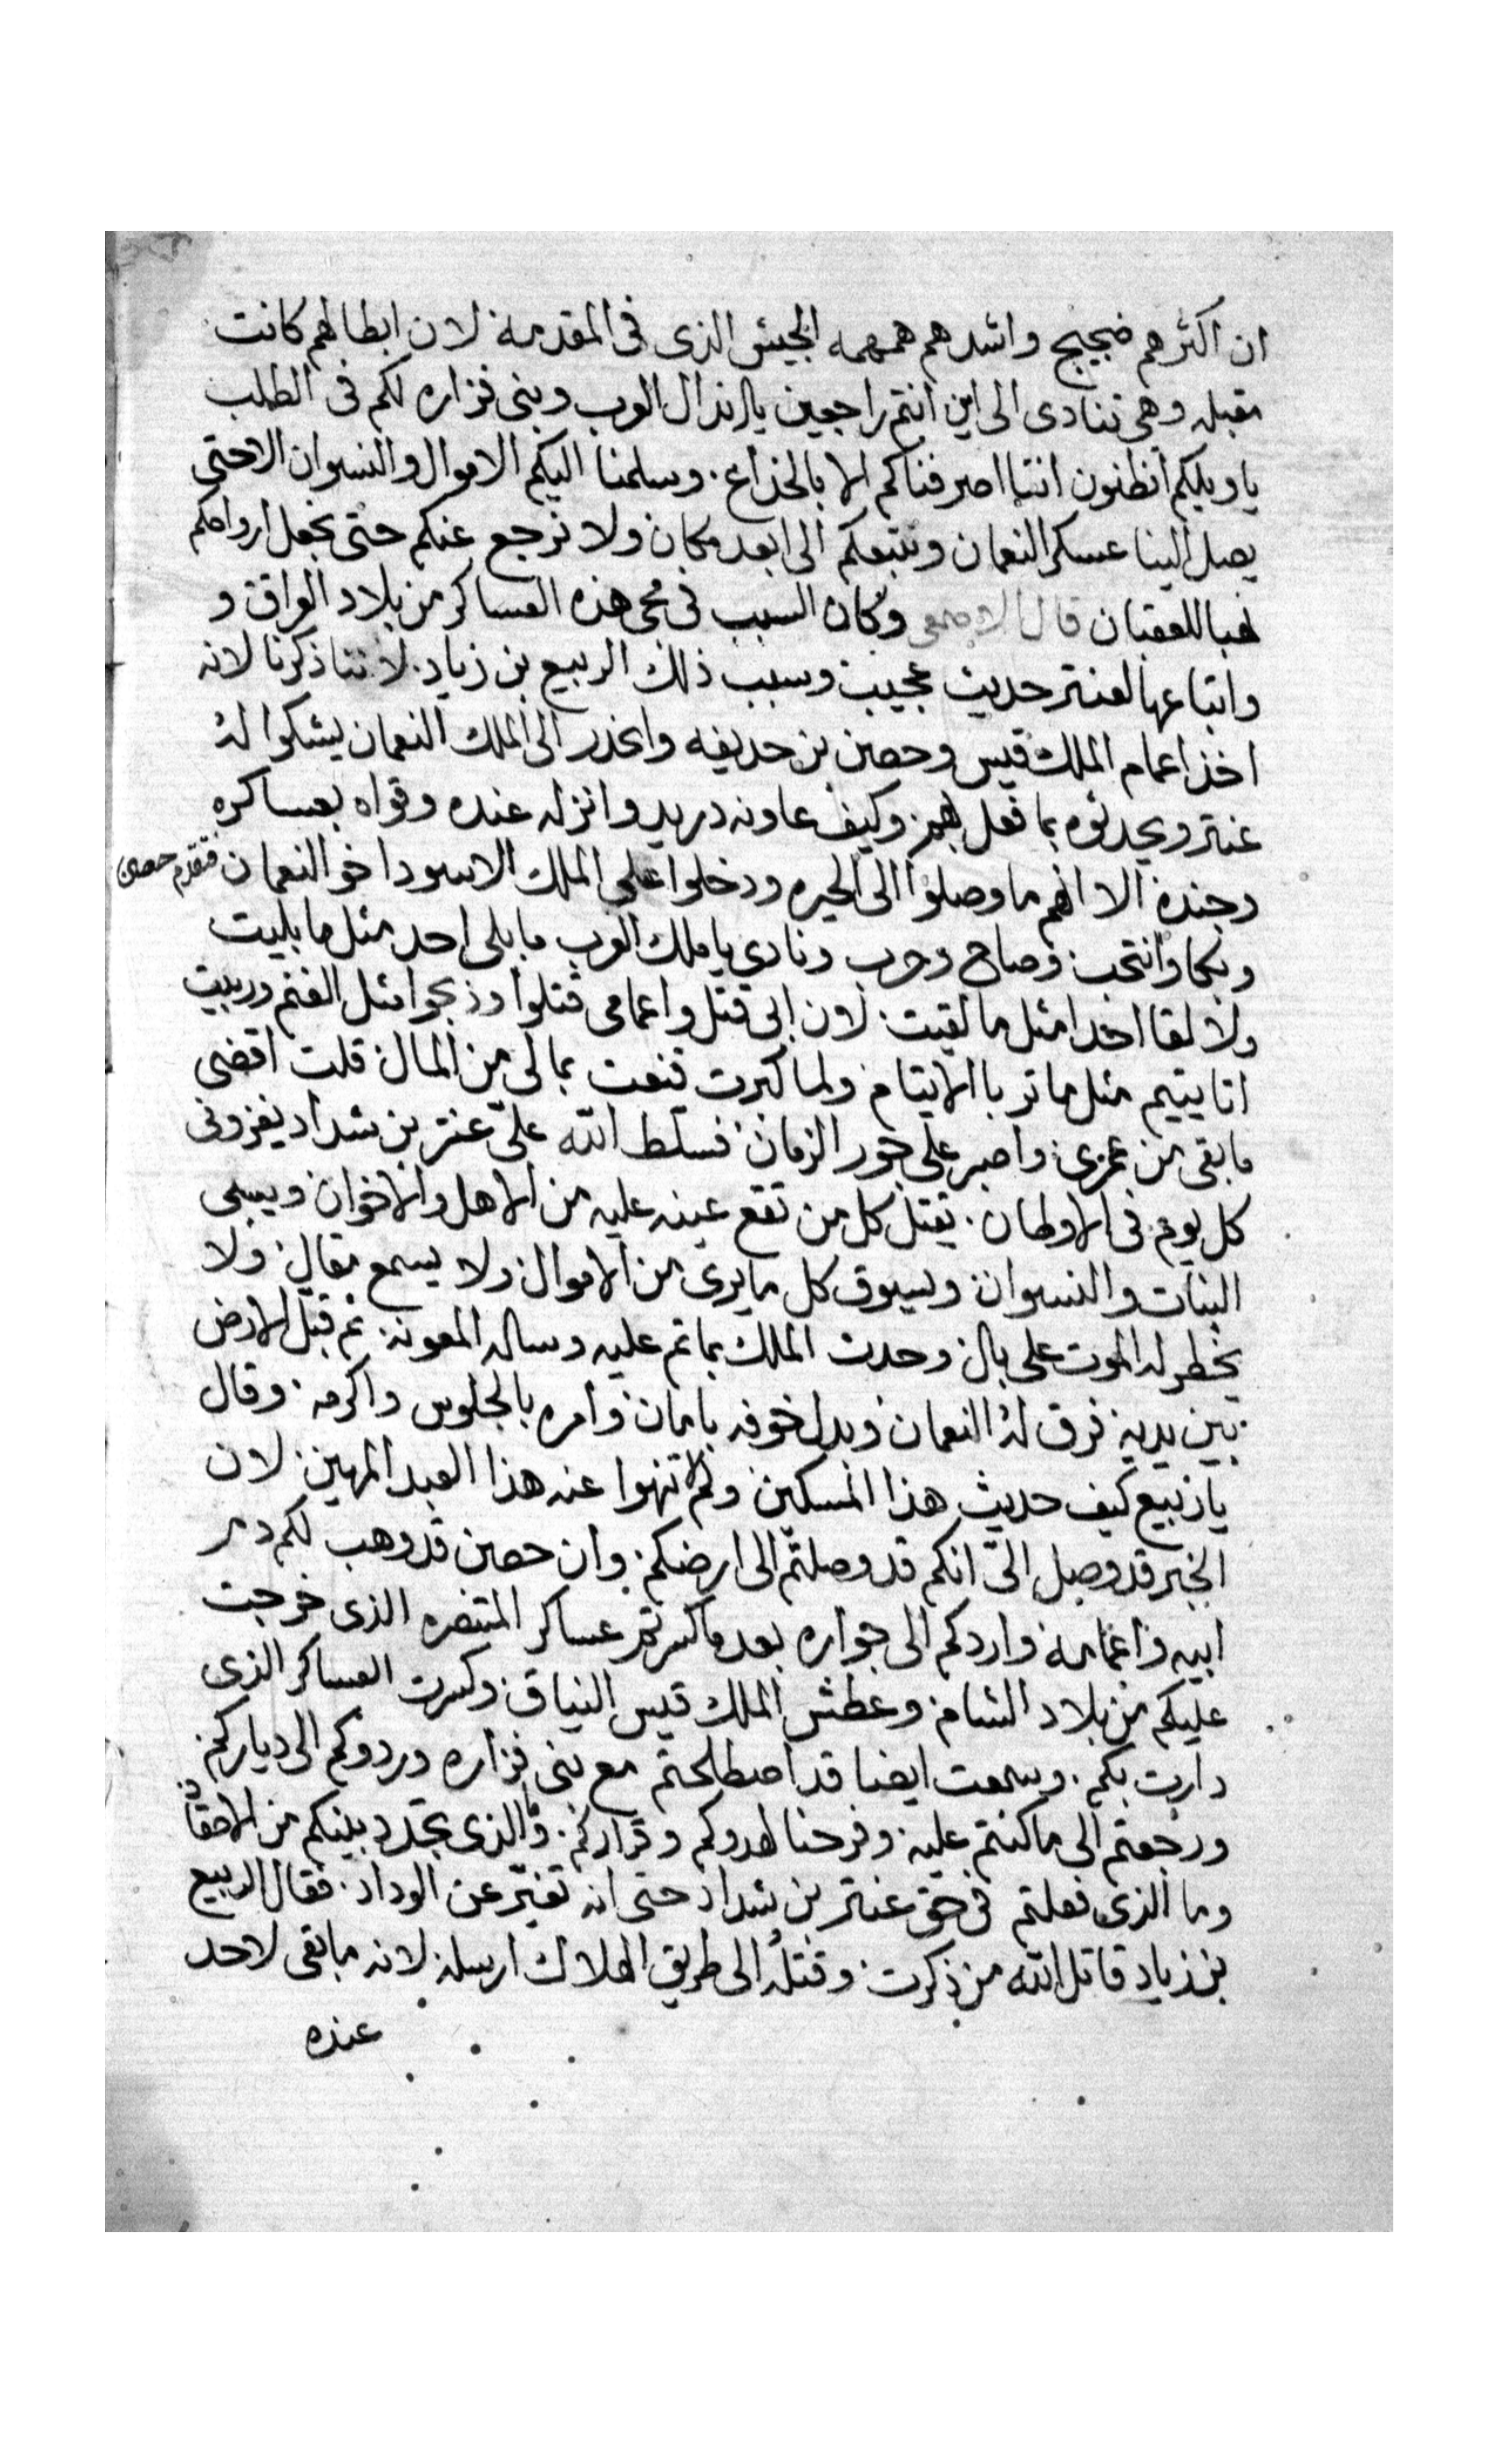 ان اكثرهم ضجيج واشدهم همهمه الجيش الذى فى المقدمة لان ابطالهم كانت
مقبله وهى تنادى الى اين انتم راجعين يا اندال العرب وبنى فزاره لكم فى الطلب
ياويلكم اتظنون اننا اصرفناكم الا بالخداع. وسلمنا اليكم الاموال والنسوان الاحتى
يصل الينا عسكر النعمان ونتبعكم الى ابعد مكان ولا نرجع عنكم حتى نجعل ارواحكم
هبا للعقبان قال الاصمعى وكان السبب فى مجى هذه العساكر من بلاد العراق و
واتباعها لعنتر حديث عجيب وسبب ذلك الربيع بن زياد. لاننا ذكرنا لانه
اخذ اعمام الملك قيس وحصين بن حديفه وانحدر الى الملك النعمان يشكوا له
عنتر ويحدثوه بما فعل بهم وكيف عاونه دريد وانزله عنده وقواه بعساكره
وجنده الا انهم ما وصلوا الى الحيره ودخلوا على الملك الاسود اخو النعمان فتقدم حصين
وبكا وانتحب وصاح وحرب ونادى يا ملك العرب ما بلى احد مثل ما بليت
ولا لقا احدا مثل ما لقيت. لان ابى قتل واعمامى قتلوا وذبحوا مثل الغنم وربيت
انا يتيم مثل ما تربا الايتام ولما كبرت قنعت بمالى من المال قلت اقضى
ما بقى من عمرى واصبر على جور الزمان فسلط الله علىّ عنتر بن شداد يغزونى
كل يوم فى الاوطان. يقتل كل من تقع عينه عليه من الاهل والاخوان ويسبى
البنات والنسوان ويسوق كل ما يرى من الاموال ولا يسمع مقال ولا
يخطر له الموت على بال وحدث الملك بما تم عليه وساله المعونه. ثم قبل الارض
بين يديه فرق له النعمان وبدل خوفه بامان وامره بالجلوس واكرمه. وقال
يا ربيع كيف حديث هذا المسكين ولم لا تنهوا عنه هذا العبد المهين. لان
الخبر قد وصل الىّ انكم قد وصلتم الى ارضكم. وان حصين قد وهب لكم دم
ابيه واعمامه واردكم الى جواره بعد ما كسرتم عساكر المتنصره الذى خرجت
عليكم من بلاد الشام وعطش الملك قيس النياق وكسرت العساكر الذى
دارت بكم. وسمعت ايضا قد اصطلحتم مع بنى فزاره وردوكم الى دياركم
ورجعتم الى ما كنتم عليه وفرحنا لهدوكم وقراركم. وما الذى تجدد بينكم من الاحقاد
وما الذى فعلتم فى حق عنتر بن شداد حتى انه تغيّر عن الوداد. فقال الربيع
بن زياد قاتل الله من ذكرت. وقتله الى طريق الهلاك ارسله لانه ما بقى لاحد
عنده